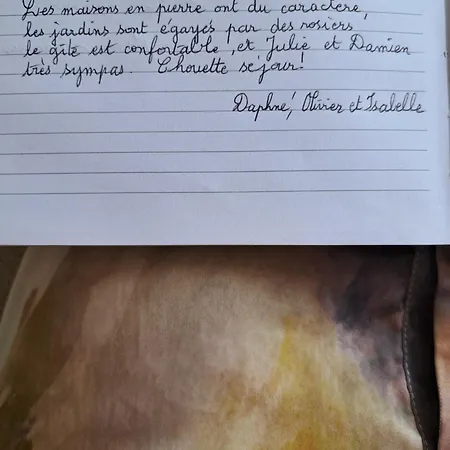 Les maisons en pierre ont du caractère,
les jardins sont égayés par des rosiers,
le gîte est confortable, et Julie et Damien
très sympas. Chouette séjour!
Daphné, Olivier et Isabelle